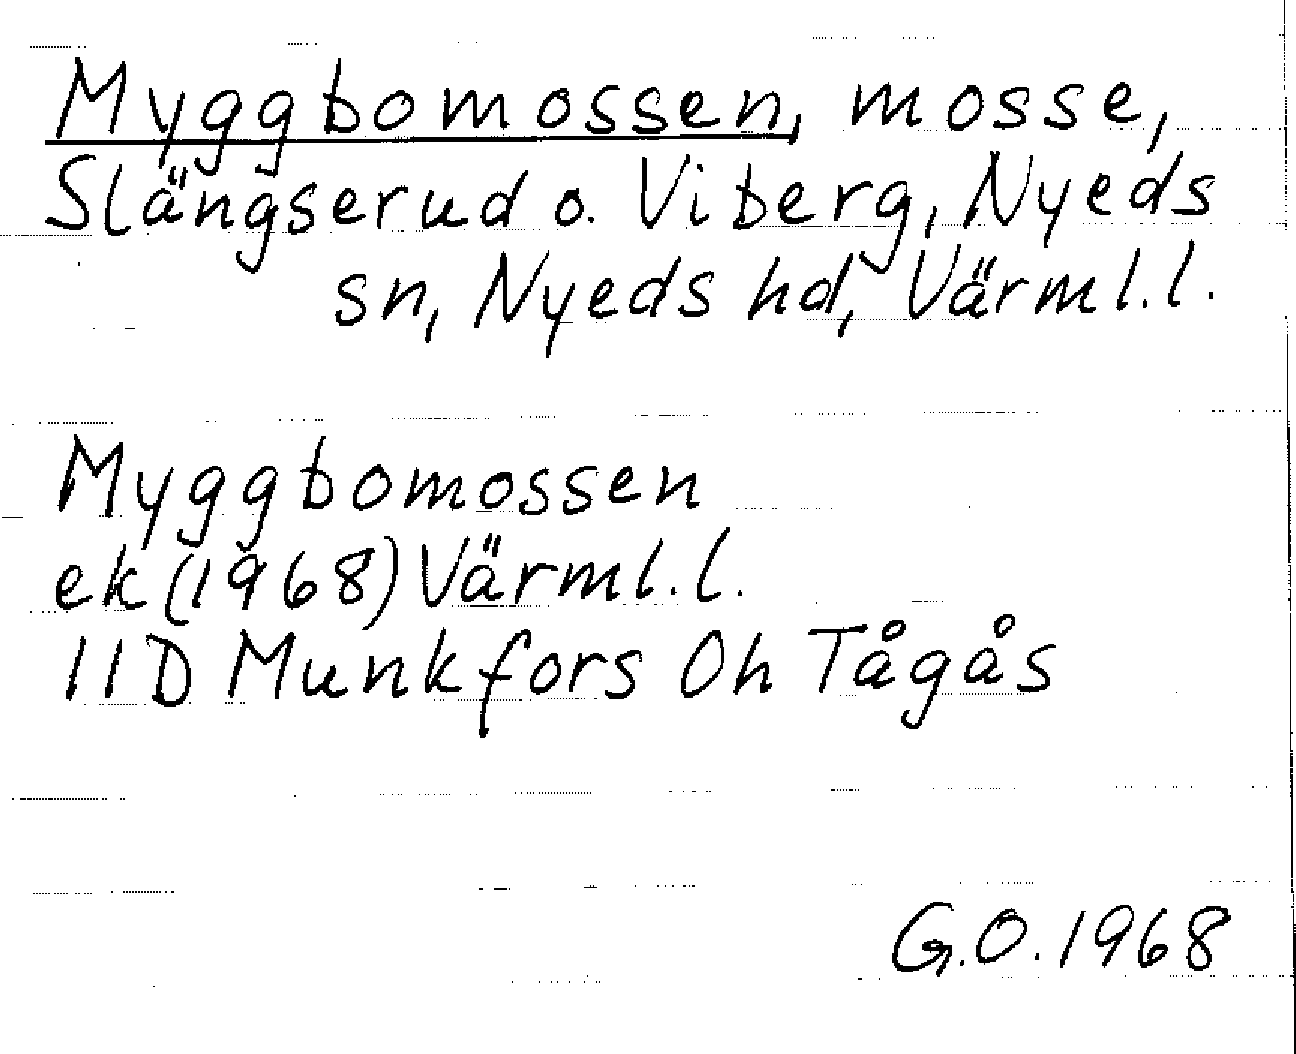 Myggbomossen, mosse,
Slängserud o. Viberg, Nyeds
sn, Nyeds hd, Värml.l.
Myggbomossen
ek (1968) Värml.l.
11D Munkfors Oh Tågås
G.O. 1968